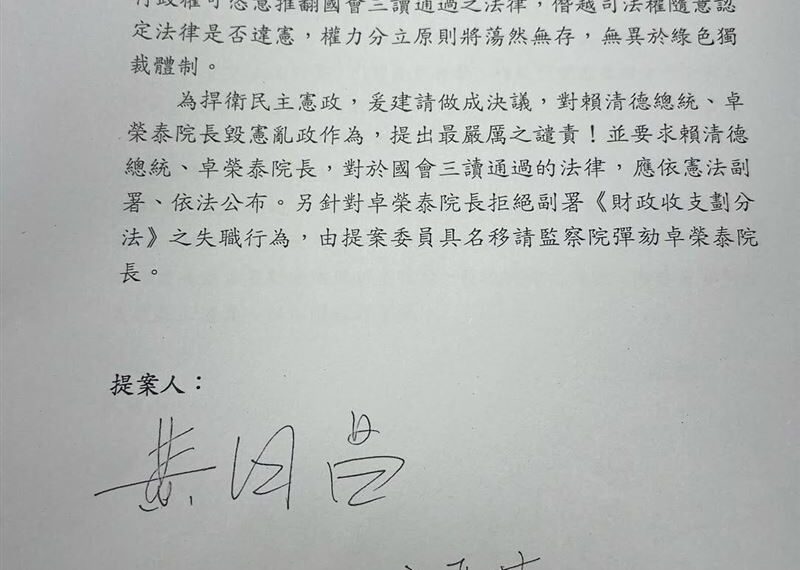 行政權可恣意推翻國會三讀通過之法律，僭越司法權隨意認
定法律是否違憲，權力分立原則將蕩然無存，無異於綠色獨
裁體制。
為捍衛民主憲政，爰建請做成決議，對賴清德總統、卓
榮泰院長毀憲亂政作為，提出最嚴厲之譴責！並要求賴清德
總統、卓榮泰院長，對於國會三讀通過的法律，應依憲法副
署、依法公布。另針對卓榮泰院長拒絕副署《財政收支劃分
法》之失職行為，由提案委員具名移請監察院彈劾卓榮泰院
長。
提案人：
黃國昌